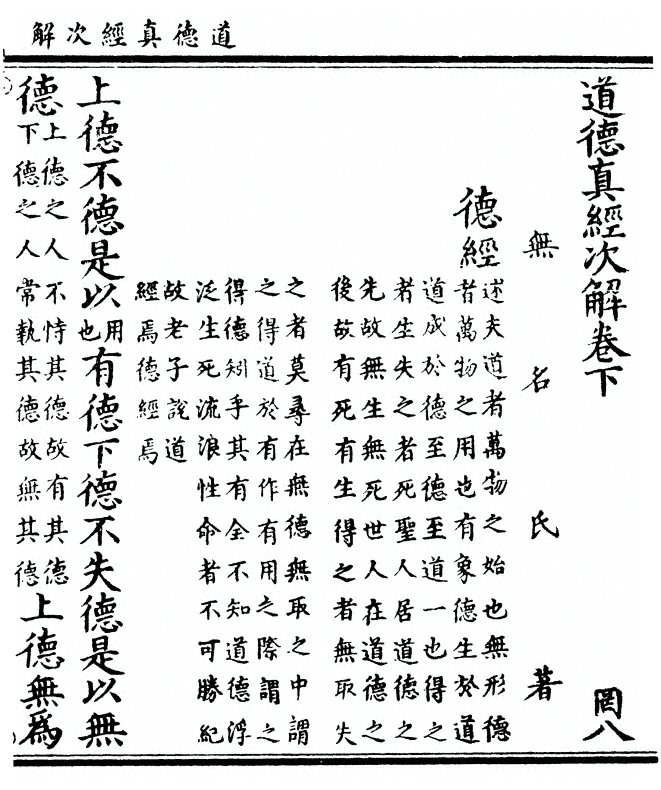 道德真經次解
道德真經次解卷下 罔八
無名氏著
德經
述夫道者萬物之始也無形德
者萬物之用也有象德生於道
道成於德至德至道一也得之
者生失之者死聖人居道德之
先故無生無死世人在道德之
後故有死有生得之者無取失
之者莫尋在無德無取之中謂
之得道於有作有用之際謂之
得德矧乎其有全不知道德浮
泛生死流浪性命者不可勝紀
故老子說道
經焉德經焉
上德不德是以用也有德下德不失德是以無
德上德之人不恃其德故有其德下德之人常執其德故無其德上德無爲